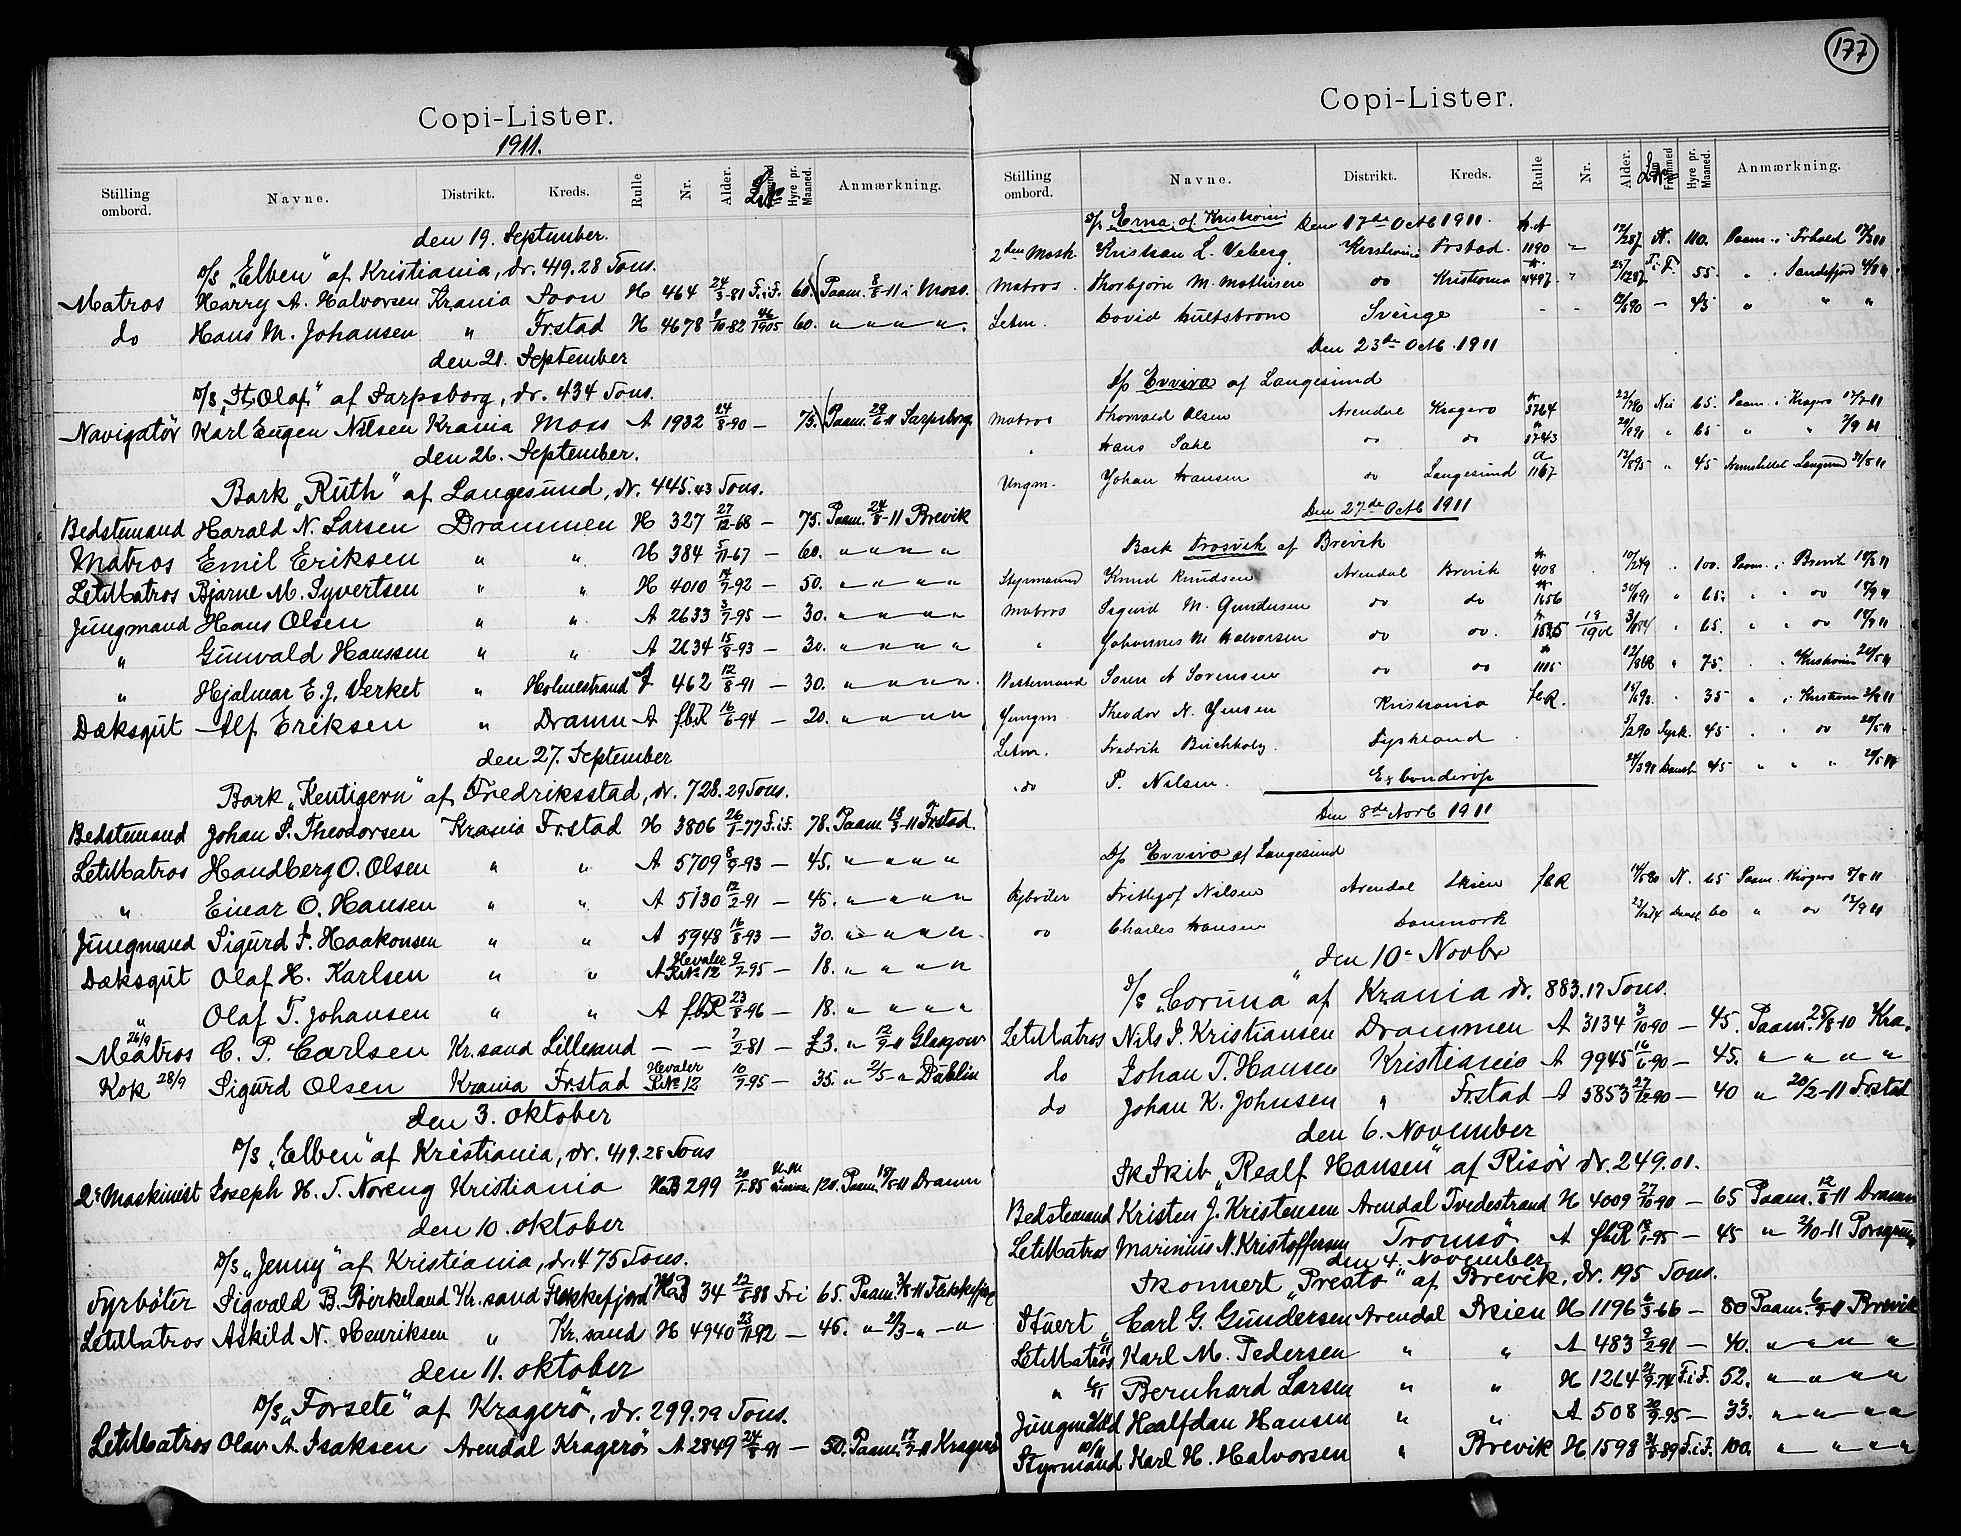 Copi-Lister.
1911.
Stilling ombord. Navne. Distrikt. Kreds. Rulle Nr. Alder. Hyre pr. Maaned. Anmærkning.
den 19. September.
D/S „Elben" af Kristiania, dr. 419.28 Tons.
Matros Harry A. Halvorsen Krania Soon H 464 24/3-81 F.i.F. 60. Paam. 8/8-11 i Moss.
do Hans M. Johansen " Frstad H 4678 9/10-82 46/1905 60. " " " "
den 21. September
D/S „St. Olaf" af Sarpsborg, dr. 434 Tons.
Navigatør Karl Eugen Nilsen Krania Moss A 1932 24/8-90 — 75. Paam. 29/6-11 Sarpsborg
den 26. September.
Bark „Ruth" af Langesund, dr. 445.43 Tons.
Bedstemand Harald N. Larsen Drammen H 327 27/12-68 — 75. Paam. 24/8-11 Brevik
Matros Emil Eriksen " " H 384 5/11-67 — 60. " " " "
LetMatros Bjarne M. Syvertsen " " H 4010 14/7-92 — 50. " " " "
Jungmand Hans Olsen " " A 2633 3/7-95 — 30. " " " "
" Gunvald Hanssen " " A 2634 15/8-93 — 30. " " " "
" Hjalmar E. J. Verket " Holmestrand A 462 12/8-91 — 30. " " " "
Dæksgut Alf Eriksen " Dramn A fbR 16/6-94 — 20. " " " "
den 27. September
Bark „Kentigern" af Fredriksstad, dr. 728.29 Tons.
Bedstemand Johan S. Theodorsen Krania Frstad H 3806 26/1-77 F.i.F. 78. Paam. 13/9-11 Frstad.
LetMatros Handberg O. Olsen " " A 5709 8/9-93 — 45. " " " "
" Einar O. Hansen " " A 5130 12/2-91 — 45. " " " "
Jungmand Sigurd J. Haakonsen " " A 5948 16/8-93 — 30. " " " "
Dæksgut Olaf H. Karlsen " " A Hevaler R.No 12 9/7-95 — 18. " " " "
" Olaf T. Johansen " " A fbR 23/8-96 — 18. " " " "
Matros 26/9 C. P. Carlsen Kr.sand Lillesand — — 7/2-81 — £3. " 12/9-11 Glasgow
Kok 28/9 Sigurd Olsen Krania Frstad Hevaler R.No 12 10/7-95 — 35. " 2/5 " Dublin
den 3. oktober
D/S „Elben" af Kristiania, dr. 419.28 Tons
2. Maskinist Joseph H. T. Noreng Kristiania HaB 299 20/1-85 120. Paam. 18/8-11 Dramn
den 10. oktober
D/S „Jenny" af Kristiania, dr. 475 Tons.
Fyrbøter Sigvald B. Birkeland Kr.sand Flekkefjord HaB 34 22/8-88 Fri 65. Paam. 7/8-11 Flekkefjord
LetMatros Askild N. Henriksen " Kr.sand H 4940 23/11-92 — 46. " 21/3 " — "
den 11. oktober
D/S „Forsete" af Kragerø, dr. 299.79 Tons.
LetMatros Olav A. Isaksen Arendal Kragerø A 2849 24/8-91 — 50. Paam. 17/7-11 Kragerø
177
Copi-Lister.
Stilling ombord. Navne. Distrikt. Kreds. Rulle Nr. Alder. Hyre pr. Maaned. Anmærkning.
D/s Erna af Kristiania Den 17de Octb 1911.
2den Mask Kristian L. Veberg Kristiania Frstad. 1190 N. 110. Paam. i Frhald
Matros Thorbjørn M. Mathisen do Kristiania 4497 F.i.F. 55. " " Sandefjord
Letm. David Hultstrøm Sverige 45 " " "
Den 23de Octb. 1911
D/s Evviva af Langesund
Matros Thorvald Olsen Arendal Kragerø 3764 65. Paam. i Kragerø
" Hans Dahl do do 3743 " 65 " "
Ungm. Johan Hansen do Langesund 1167 " 45
Den 27de Octb 1911
Bark Frosvik af Brevik
Styrmand Knud Knudsen Arendal Brevik 408 " 100. Paam. i Brevik
Matros Sigurd M. Gundersen do do 1656 " 65. " " do
" Johannes M. Halvorsen do do. 1585 " 65. " " do
Bestemand Søren A Sørensen do do 1115 " 75. " Kristiania
Jungm. Theodor N. Jensen Kristiania fbR. 35 " i Kristiania
Letm. Fredrik Buchholz. Tyskland Tysk. 45 " " do
do P. Nilsen. Dansk 45 " " "
Den 8de Novb 1911
D/s Evviva af Langesund
Fyrbøder Frithjof Nilsen Arendal Skien fbR N. 65 Paam. Kragerø
do Charles Hansen Danmark Dansk 60 " do
den 10. Novbr
D/S „Coruna" af Krania dr. 883.17 Tons.
LetMatros Nils J. Kristiansen Drammen A 3134 3/10-90 — 45. Paam. Kra.
do Johan T. Hansen Kristiania A 9945 16/6-90 — 45. " " " "
do Johan K. Johnsen " Frstad A 5853 27/12-90 — 40 " 20/2-11 Frstad
den 6. November
SkSkib „Realf Hansen" af Risør dr. 249.01.
Bedstemand Kristen J. Kristensen Arendal Tvedestrand H 4009 27/10-90 — 65 Paam. 12/8-11 Dramn
LetMatros Marinius N. Kristoffersen Tromsø A fbR — 45 " 2/10-11 Porsgrund
den 4. November
Skonnert „Presto" af Brevik, dr. 195 Tons.
Stuert Carl G. Gundersen Arendal Skien H 1196 6/3-66 — 80 Paam. 6/9-11 Brevik
LetMatros Karl M. Pedersen " " A 483 9/2-91 — 40. " " " "
" Bernhard Larsen " " H 1264 21/9-74 F.i.F. 52. " " " "
Jungmand Halfdan Hansen " " A 508 20/9-95 — 33. " " " "
Styrmand 10/11 Karl H. Halvorsen " Brevik H 1598 31/8-89 F.i.F. 100. " " " "